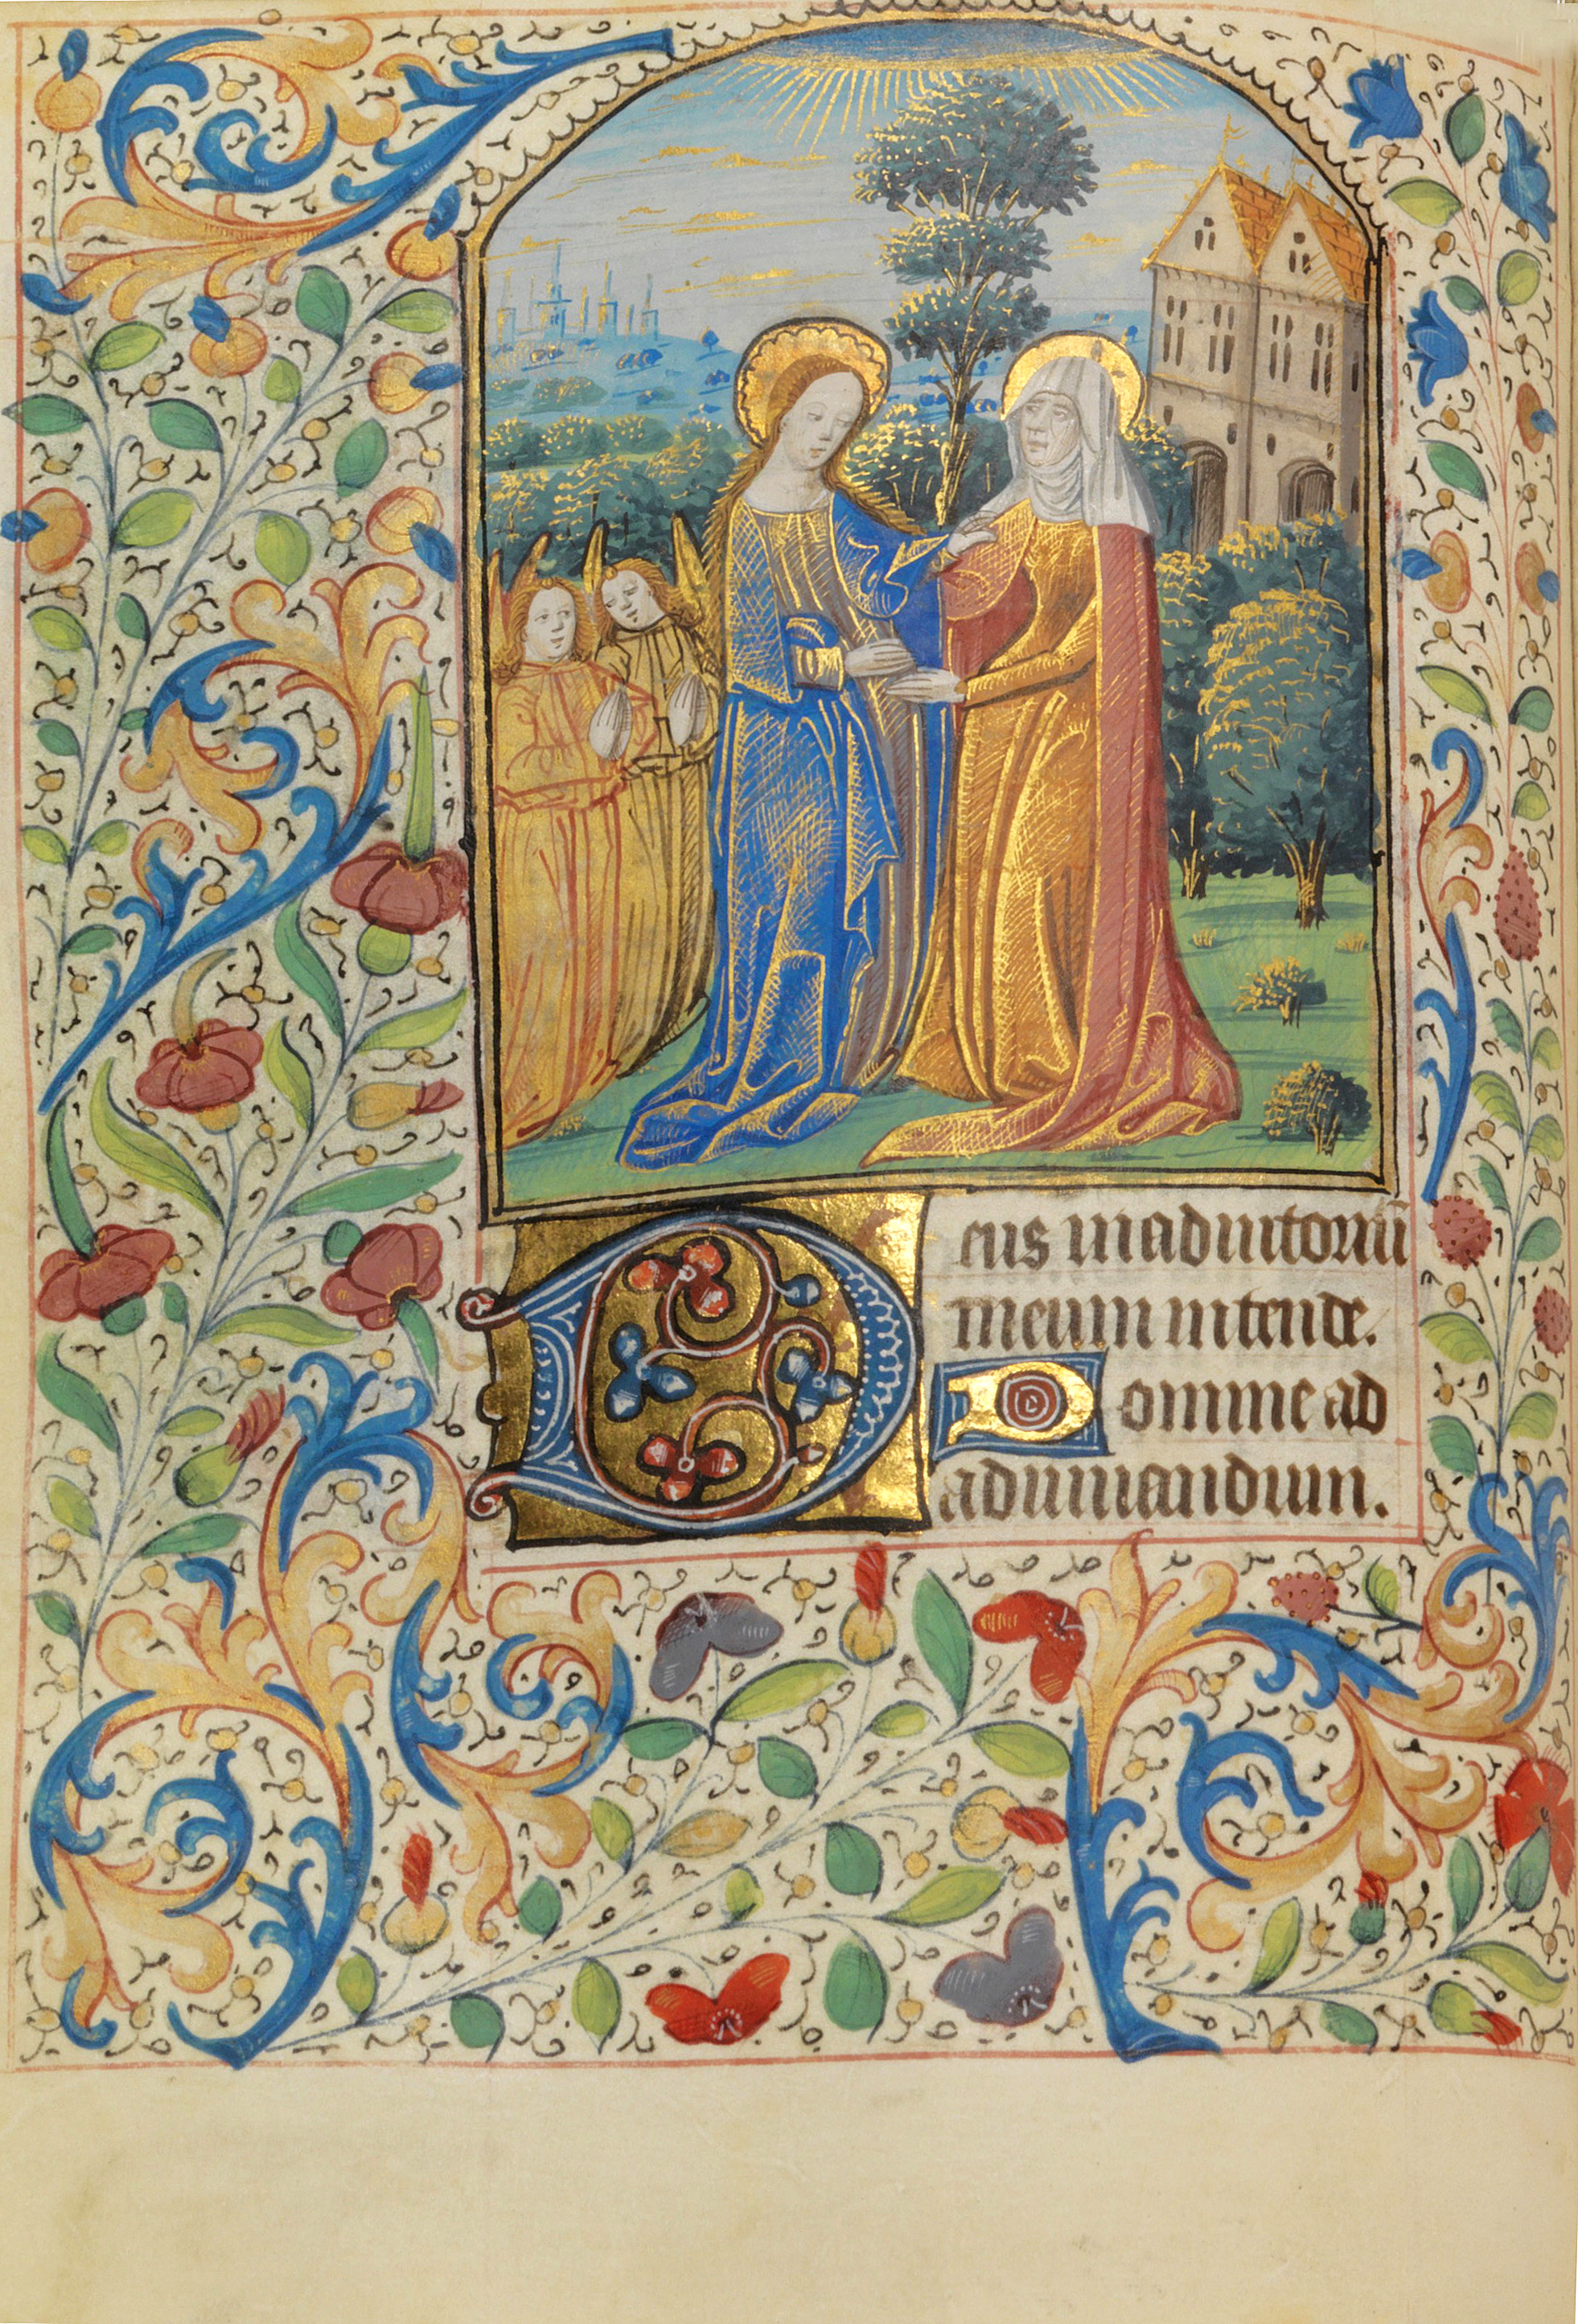 Deus in adiutoriū
meum intende.
Domine ad
adiuuandum.